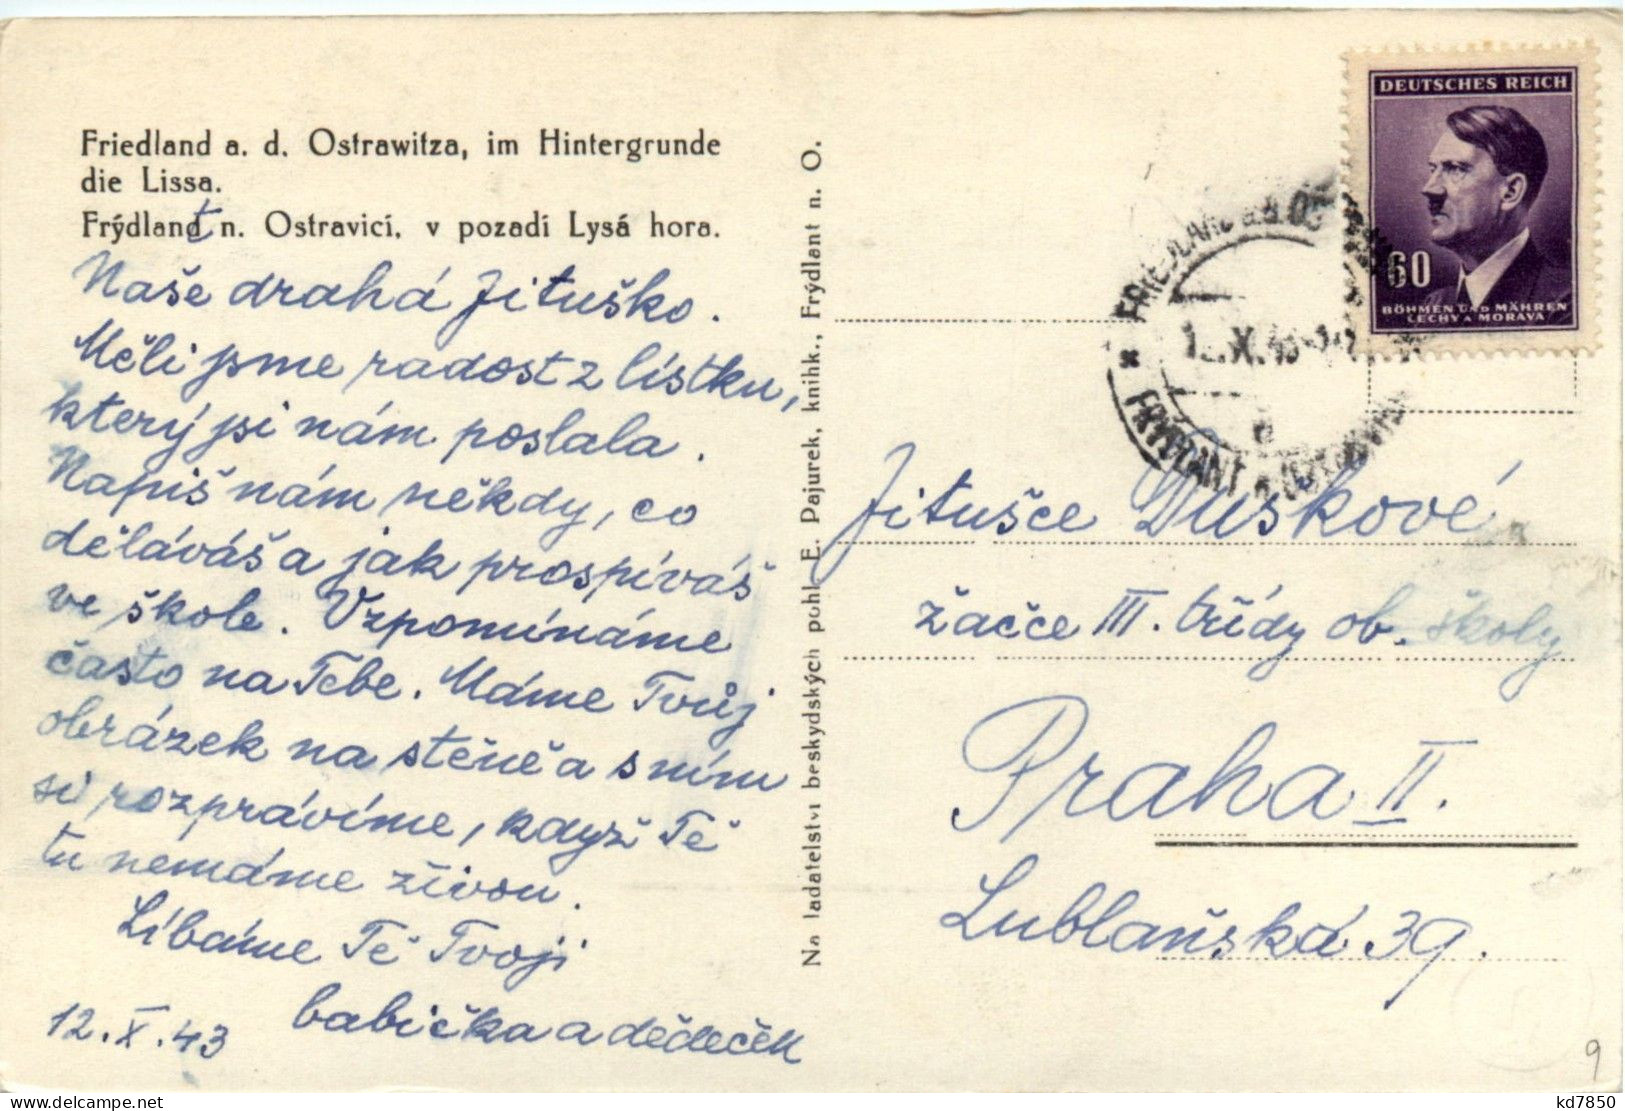 Friedland a. d. Ostrawitza, im Hintergrunde
die Lissa.
Frýdlant n. Ostravicí, v pozadí Lysá hora.
Naše drahá Jituško.
Měli jsme radost z lístku,
který jsi nám poslala.
Napiš nám někdy, co
děláváš a jak prospíváš
ve škole. Vzpomínáme
často na Tebe. Máme Tvůj
obrázek na stěně a s ním
si rozprávíme, když Tě
tu nemáme živou.
Líbáme Tě Tvoji
babička a dědeček
12.X.43
Nakladatelství beskydských pohl. E. Pajurek, knihk., Frýdlant n. O.
DEUTSCHES REICH
60
BÖHMEN UND MÄHREN
ČECHY A MORAVA
FRIEDLAND a.d. OSTRAWITZA
X. 43
FRÝDLANT n. OSTRAVICÍ
Jitušce Duškové
žačce III. třídy ob. školy
Praha II.
Lublaňská 39.
9
kd7850